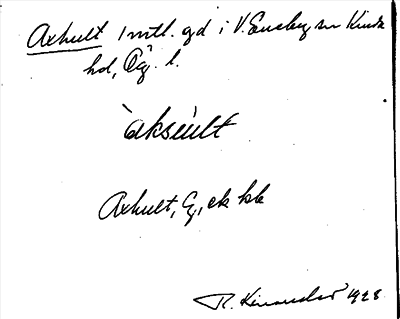 Axhult 1 mtl. gd i V. Eneby sn Kinda
hd, Ög. l.
`aksèult
Axhult, G, ek bk
R. Kinander 1928